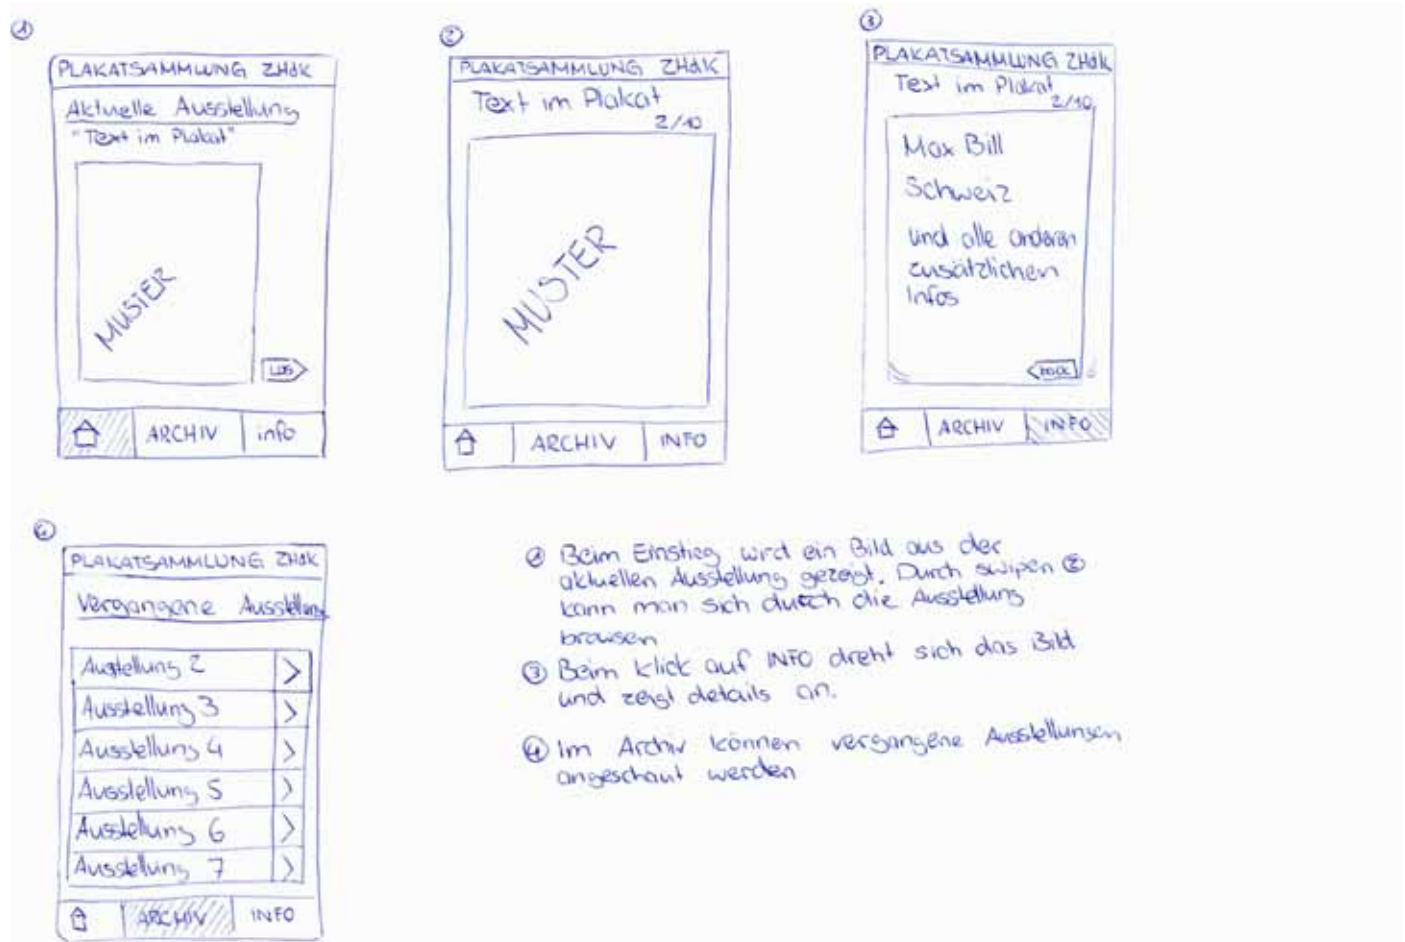 ①
PLAKATSAMMLUNG ZHdK
Aktuelle Ausstellung
"Text im Plakat"
MUSTER
LOS
ARCHIV
info
②
PLAKATSAMMLUNG ZHdK
Text im Plakat
2/10
MUSTER
ARCHIV
INFO
③
PLAKATSAMMLUNG ZHdK
Text im Plakat
2/10
Max Bill
Schweiz
und alle anderen
zusätzlichen
Infos
BACK
ARCHIV
INFO
④
PLAKATSAMMLUNG ZHdK
Vergangene Ausstellung
Austellung 2
Ausstellung 3
Ausstellung 4
Ausstellung 5
Ausstellung 6
Ausstellung 7
ARCHIV
INFO
① Beim Einstieg wird ein Bild aus der
aktuellen Ausstellung gezeigt. Durch swipen ②
kann man sich durch die Ausstellung
browsen
③ Beim klick auf INFO dreht sich das Bild
und zeigt details an.
④ Im Archiv können vergangene Ausstellungen
angeschaut werden